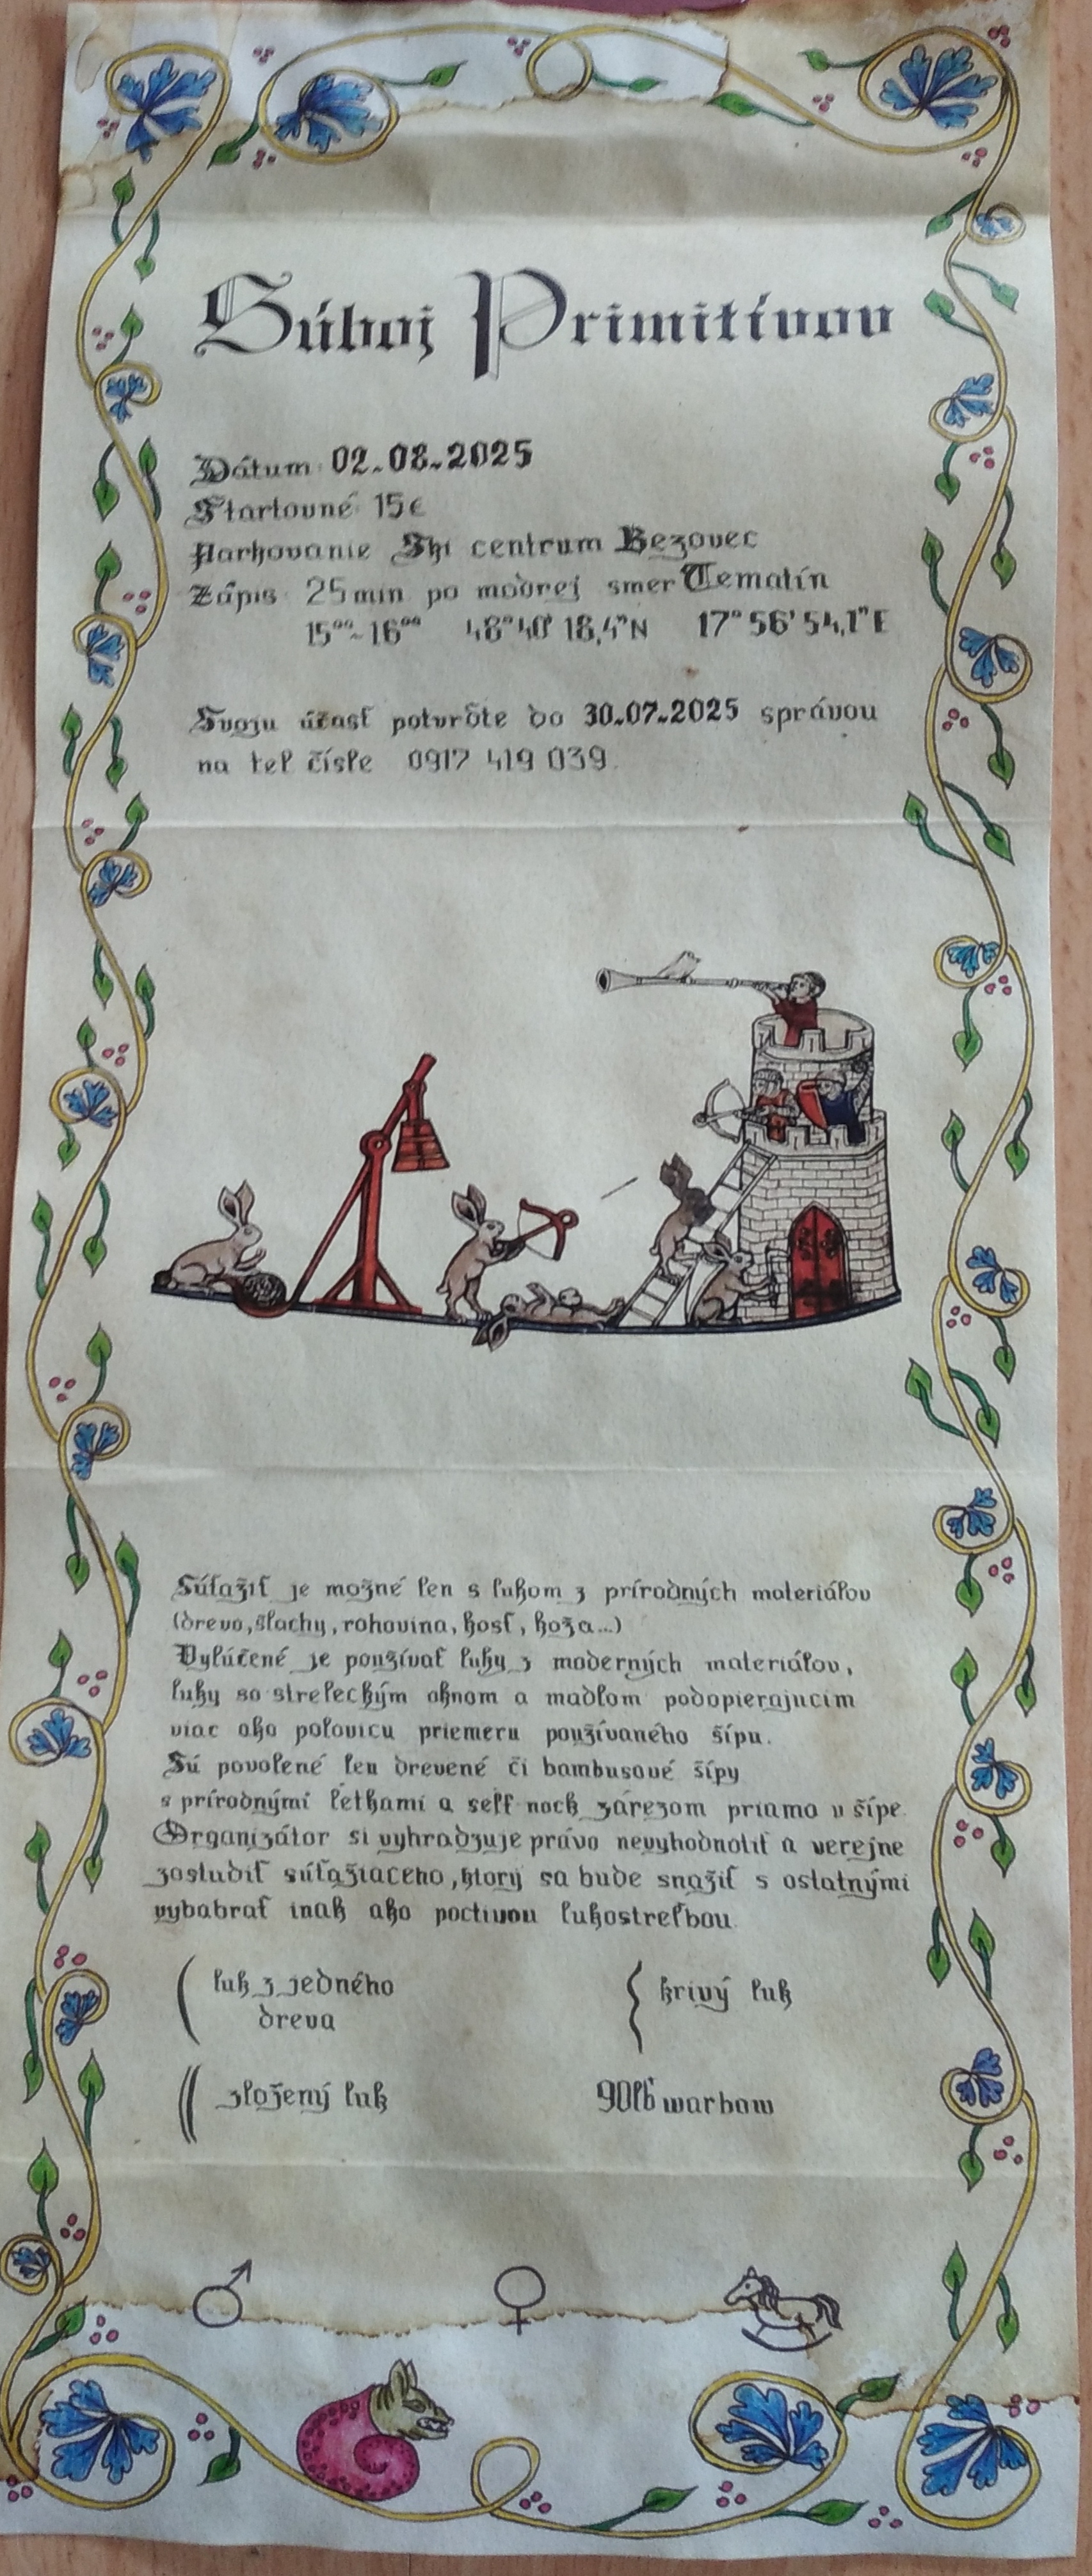 Súboj Primitívov
Dátum 02.08.2025
Štartovné 15€
Parkovanie Ski centrum Bezovec
Zápis 25 min po modrej smer Tematín
15⁰⁰-16⁰⁰ 48°40' 18,4"N 17°56'54,1"E
Svoju účasť potvrďte do 30.07.2025 správou
na tel čísle 0917 419 039.
Súťažiť je možné len s lukom z prírodných materiálov
(drevo, šlachy, rohovina, kosť, koža...)
Vylúčené je používať luky z moderných materiálov,
luky so streleckým oknom a madlom podopierajucim
viac ako polovicu priemeru používaného šípu.
Sú povolené len drevené či bambusové šípy
s prírodnými letkami a self nock zárezom priamo v šípe.
Organizátor si vyhradzuje právo nevyhodnotiť a verejne
zostudiť súťažiaceho, ktorý sa bude snažiť s ostatnými
vybabrať inak ako poctivou lukostreľbou.
luk z jedného
dreva
krivý luk
zložený luk
90lb warbow